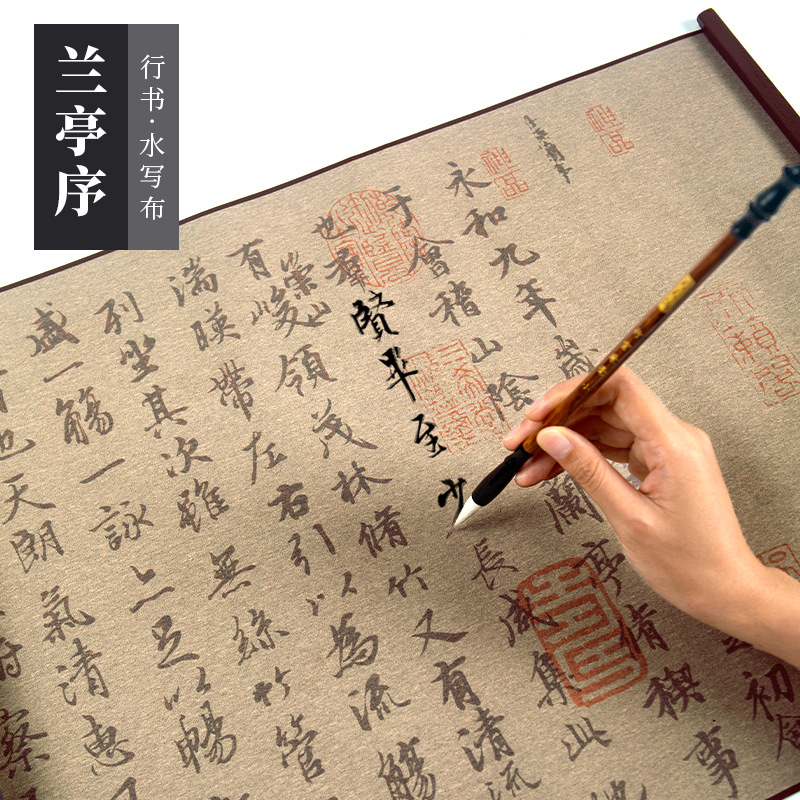 兰亭序
行书·水写布
永和九年歲
初會
于會稽山陰
蘭亭脩稧事
也羣賢畢至少長咸集此地
有崇山峻領茂林脩竹又有清流
湍暎帶左右引以為流觴
列坐其次雖無絲竹管
盛一觴一詠亦足以暢
也天朗氣清惠
察